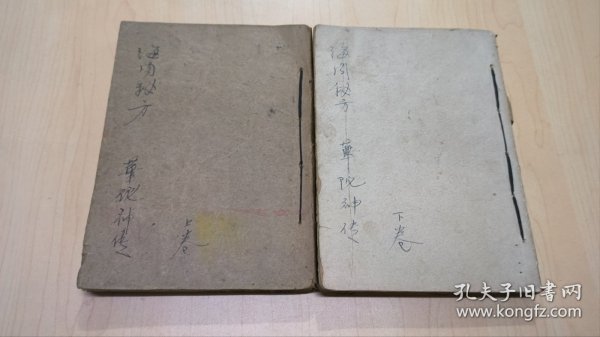 海内秘方
華陀神传
上卷
海内秘方
華陀神传
下卷
孔夫子旧书网
www.kongfz.com